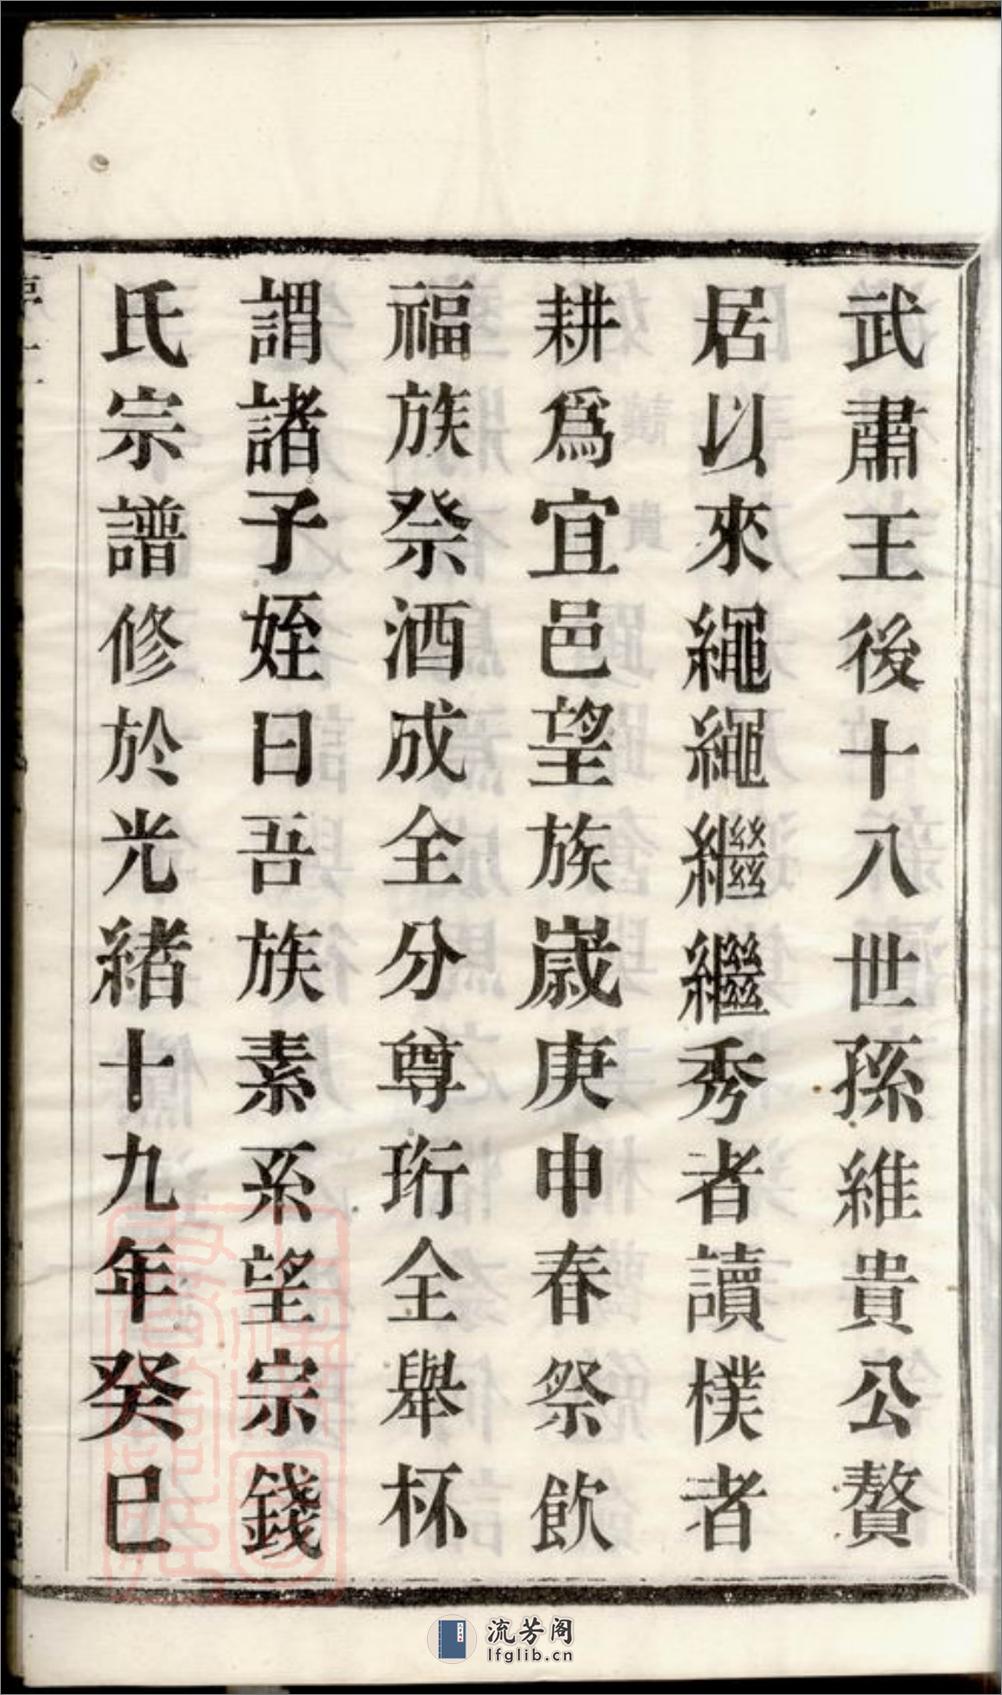 武肅王後十八世孫維貴公贅
居以來繩繩繼繼秀者讀樸者
耕爲宜邑望族歲庚申春祭飲
福族祭酒成全分尊珩全舉杯
謂諸子姪曰吾族素系望宗錢
氏宗譜修於光緒十九年癸巳
流芳阁
lfglib.cn